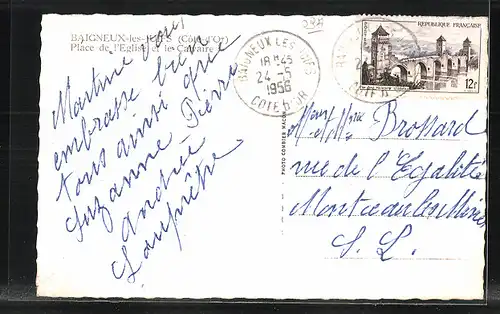 BAIGNEUX-les-JUIFS (Côte-d'Or)
Place de l'Eglise et le Calvaire
Martine vous
embrasse bien
tous ainsi que
Suzanne Pierre
Andrée
BAIGNEUX LES JUIFS
18 H 45
24 - 5
1956
COTE D'OR
REPUBLIQUE FRANÇAISE
12F
PHOTO COMBIER MACON
Brossard
rue de l'Egalité
Montceau les Mines
S. L.